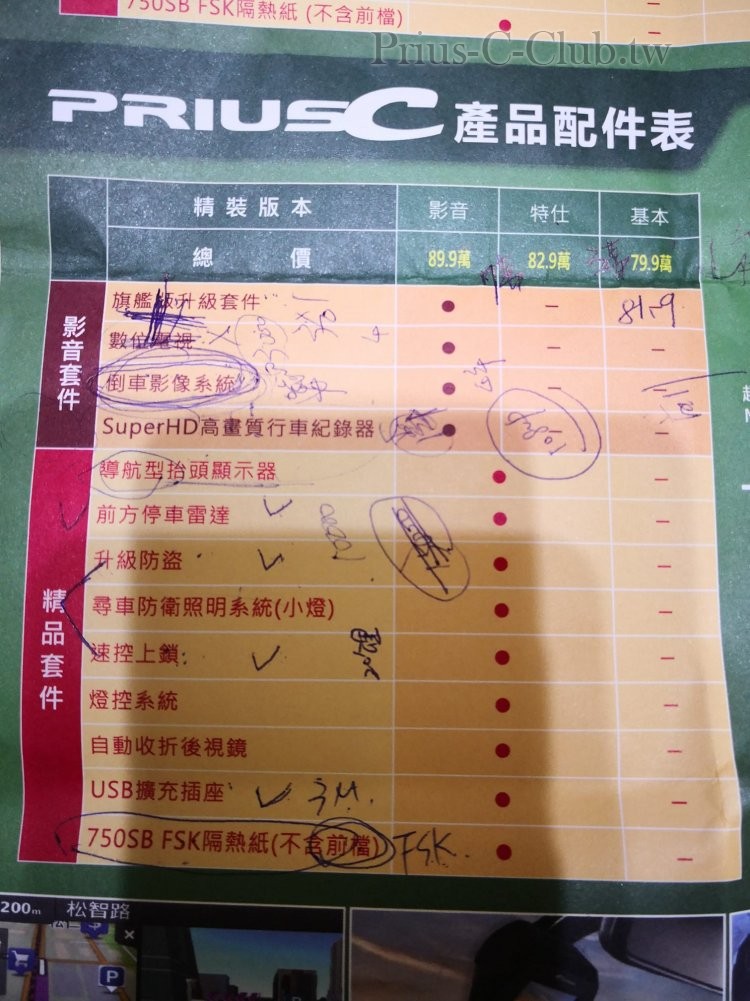 750SB FSK隔熱紙 (不含前檔) ● —
Prius-C-Club.tw
PRIUS C 產品配件表
精裝版本 影音 特仕 基本
總價 89.9萬 82.9萬 79.9萬
影音套件
旗艦級升級套件 ● — 81.9
數位電視 ● — —
倒車影像系統 ● — —
SuperHD高畫質行車紀錄器 ● —
精品套件
導航型抬頭顯示器 ● —
前方停車雷達 ● —
升級防盜 ● —
尋車防衛照明系統(小燈) ● —
速控上鎖 ● —
燈控系統 ● —
自動收折後視鏡 ● —
USB擴充插座 3M. ● —
750SB FSK隔熱紙(不含前檔) FSK. ● —
200m 松智路
P